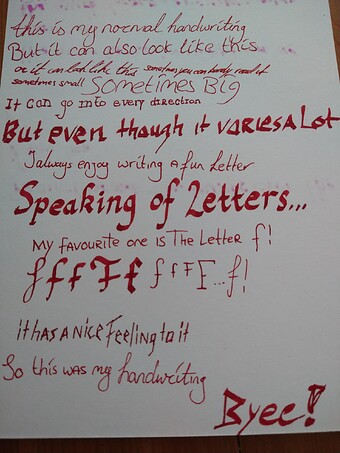 this is my normal handwriting
But it can also look like this
or it can look like this sometimes you can hardly read it
sometimes small SOMETIMES BIG
It can go into every direction
But even though it varies a lot
I always enjoy writing a fun letter
Speaking of Letters...
My favourite one is The Letter f!
f f f F f f f F F ... f!
it has a nice feeling to it
So this was my handwriting
Byee!